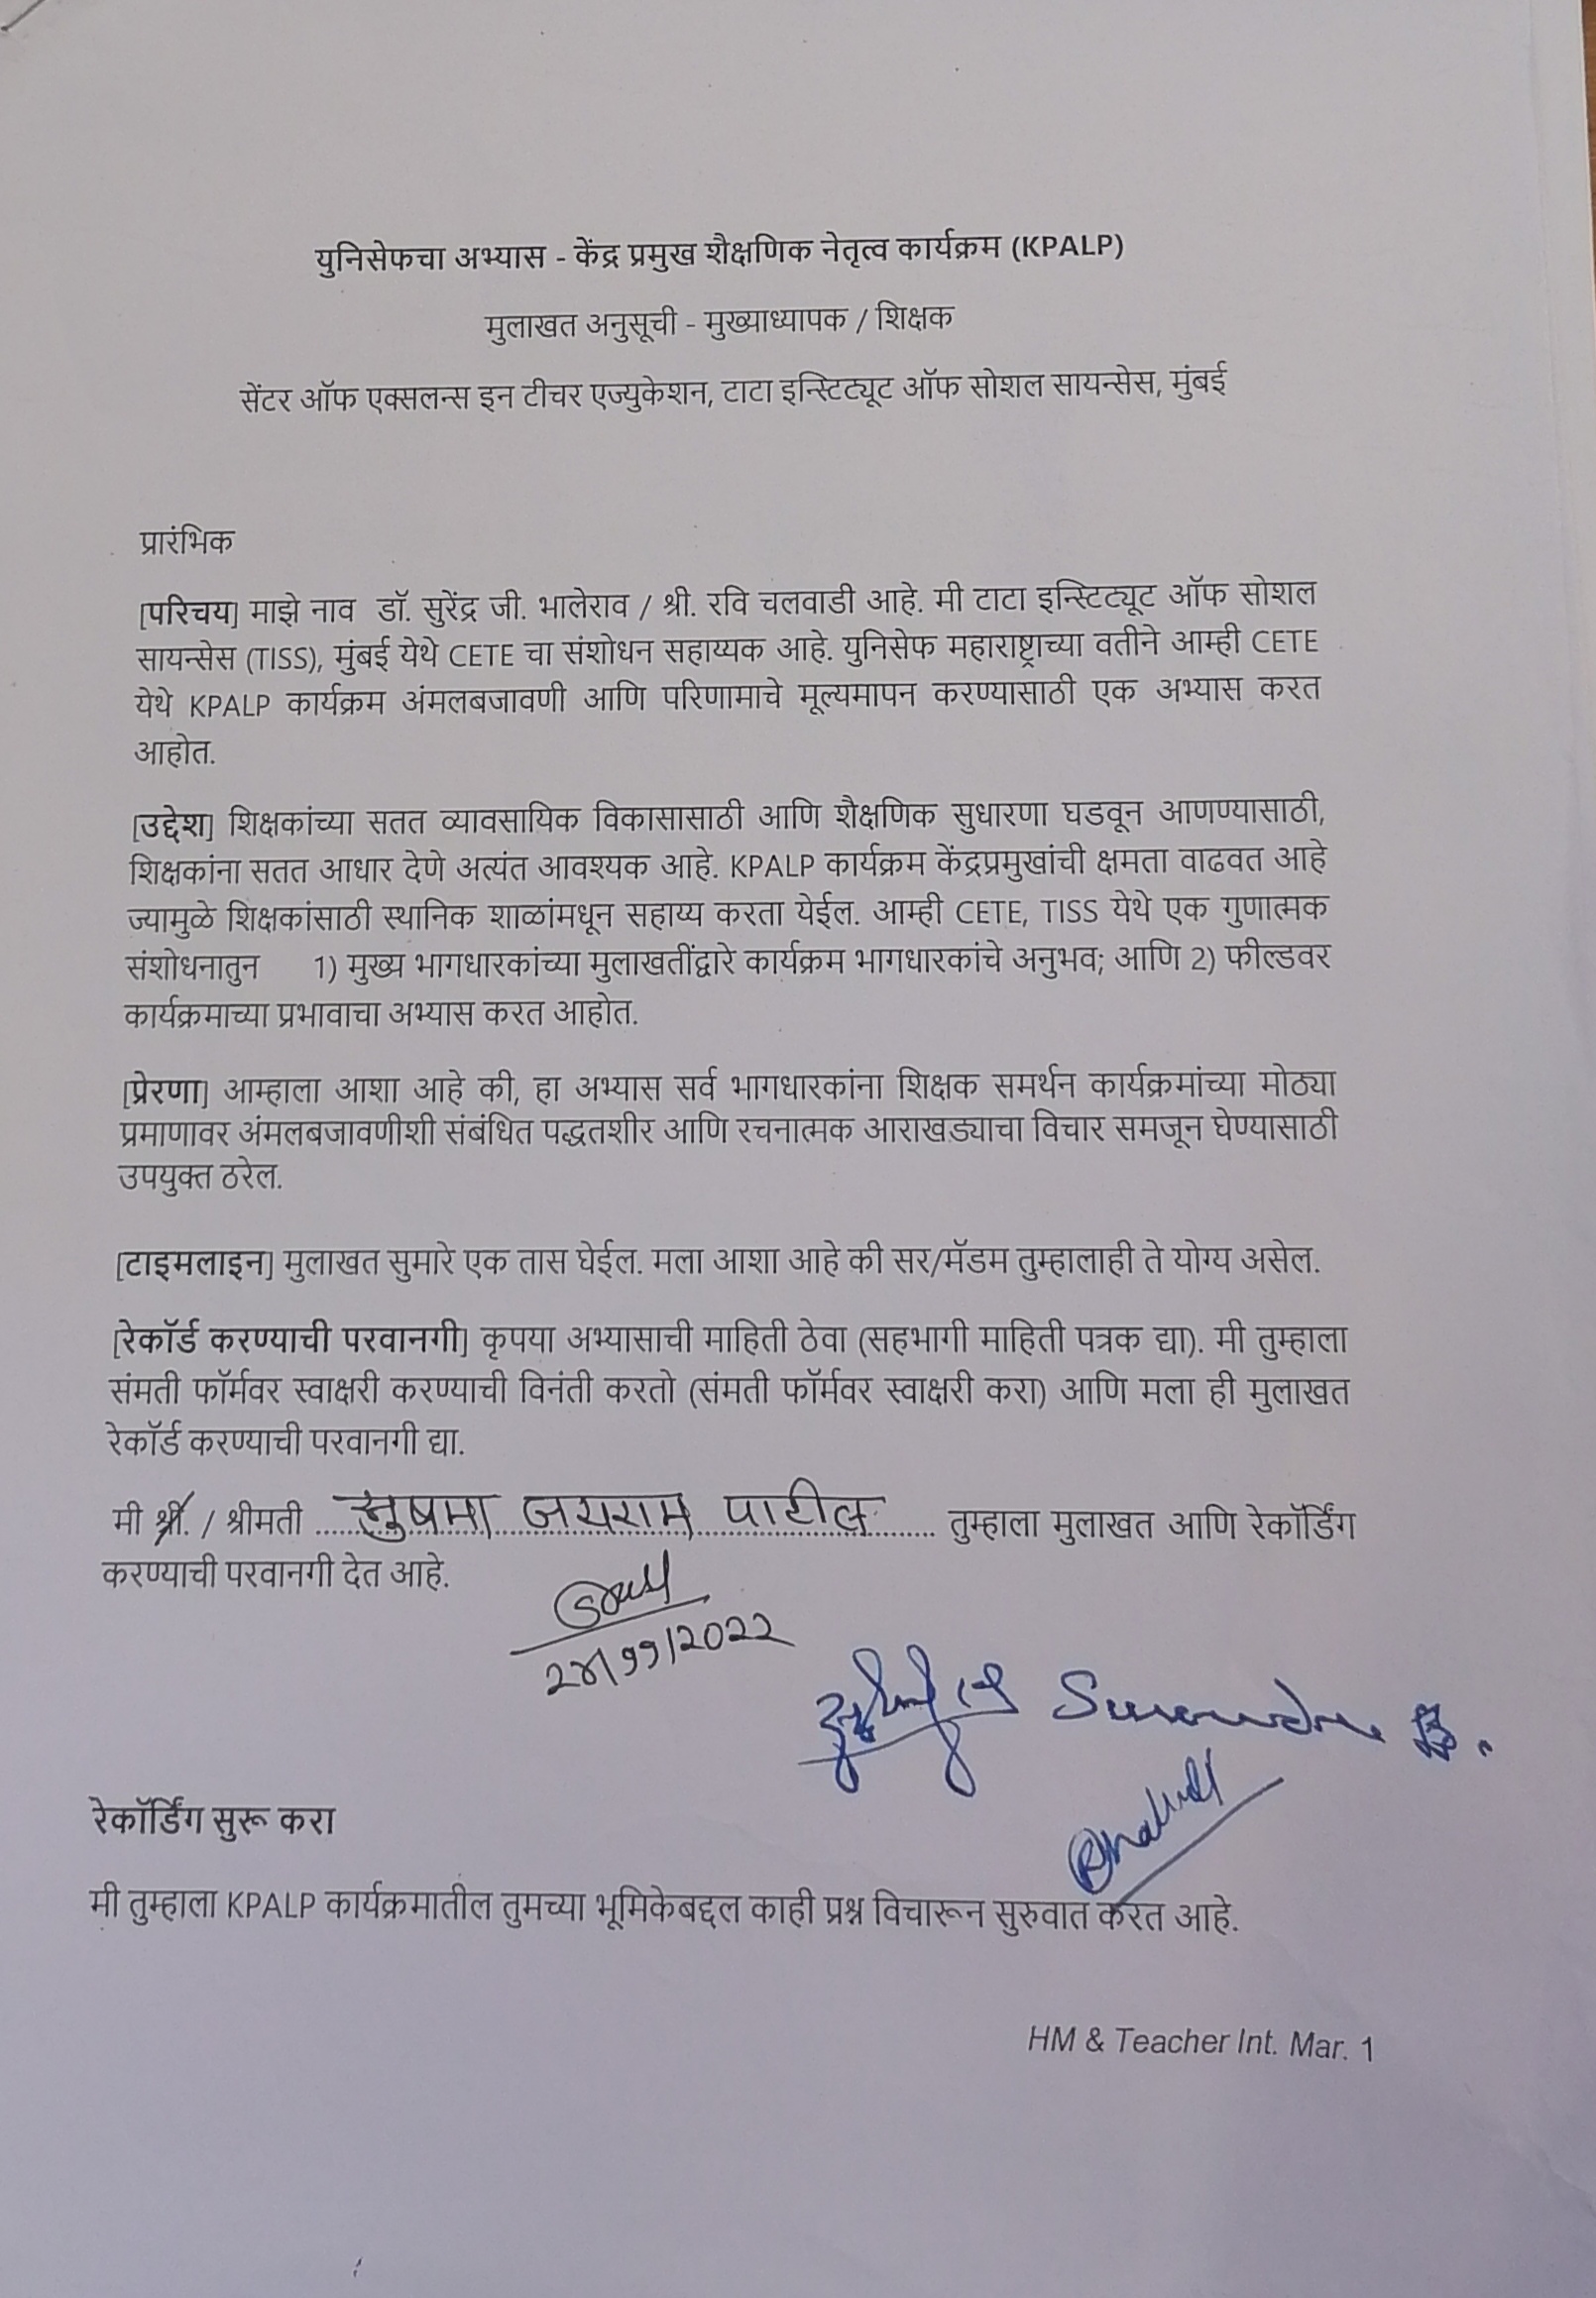 युनिसेफचा अभ्यास - केंद्र प्रमुख शैक्षणिक नेतृत्व कार्यक्रम (KPALP)
मुलाखत अनुसूची - मुख्याध्यापक / शिक्षक
सेंटर ऑफ एक्सलन्स इन टीचर एज्युकेशन, टाटा इन्स्टिट्यूट ऑफ सोशल सायन्सेस, मुंबई
प्रारंभिक
[परिचय] माझे नाव डॉ. सुरेंद्र जी. भालेराव / श्री. रवि चलवाडी आहे. मी टाटा इन्स्टिट्यूट ऑफ सोशल
सायन्सेस (TISS), मुंबई येथे CETE चा संशोधन सहाय्यक आहे. युनिसेफ महाराष्ट्राच्या वतीने आम्ही CETE
येथे KPALP कार्यक्रम अंमलबजावणी आणि परिणामाचे मूल्यमापन करण्यासाठी एक अभ्यास करत
आहोत.
[उद्देश] शिक्षकांच्या सतत व्यावसायिक विकासासाठी आणि शैक्षणिक सुधारणा घडवून आणण्यासाठी,
शिक्षकांना सतत आधार देणे अत्यंत आवश्यक आहे. KPALP कार्यक्रम केंद्रप्रमुखांची क्षमता वाढवत आहे
ज्यामुळे शिक्षकांसाठी स्थानिक शाळांमधून सहाय्य करता येईल. आम्ही CETE, TISS येथे एक गुणात्मक
संशोधनातुन 1) मुख्य भागधारकांच्या मुलाखतींद्वारे कार्यक्रम भागधारकांचे अनुभव; आणि 2) फील्डवर
कार्यक्रमाच्या प्रभावाचा अभ्यास करत आहोत.
[प्रेरणा] आम्हाला आशा आहे की, हा अभ्यास सर्व भागधारकांना शिक्षक समर्थन कार्यक्रमांच्या मोठ्या
प्रमाणावर अंमलबजावणीशी संबंधित पद्धतशीर आणि रचनात्मक आराखड्याचा विचार समजून घेण्यासाठी
उपयुक्त ठरेल.
[टाइमलाइन] मुलाखत सुमारे एक तास घेईल. मला आशा आहे की सर/मॅडम तुम्हालाही ते योग्य असेल.
[रेकॉर्ड करण्याची परवानगी] कृपया अभ्यासाची माहिती ठेवा (सहभागी माहिती पत्रक द्या). मी तुम्हाला
संमती फॉर्मवर स्वाक्षरी करण्याची विनंती करतो (संमती फॉर्मवर स्वाक्षरी करा) आणि मला ही मुलाखत
रेकॉर्ड करण्याची परवानगी द्या.
मी श्री. / श्रीमती सुषमा जयराम पाटील तुम्हाला मुलाखत आणि रेकॉर्डिंग
करण्याची परवानगी देत आहे.
२४/११/2022
रेकॉर्डिंग सुरू करा
मी तुम्हाला KPALP कार्यक्रमातील तुमच्या भूमिकेबद्दल काही प्रश्न विचारून सुरुवात करत आहे.
HM & Teacher Int. Mar. 1